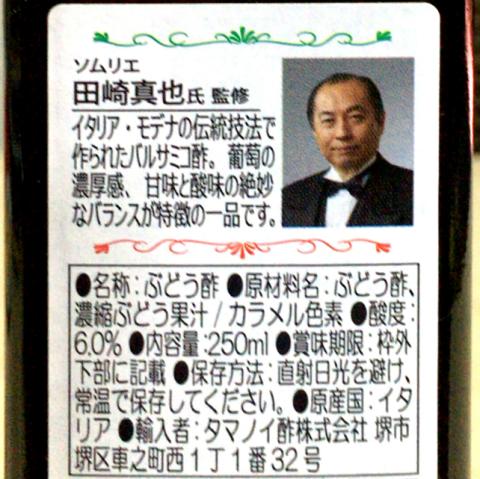 ソムリエ
田崎真也氏 監修
イタリア・モデナの伝統技法で
作られたバルサミコ酢。葡萄の
濃厚感、甘味と酸味の絶妙
なバランスが特徴の一品です。
●名称:ぶどう酢 ●原材料名:ぶどう酢、
濃縮ぶどう果汁/カラメル色素 ●酸度:
6.0% ●内容量:250ml ●賞味期限:枠外
下部に記載 ●保存方法:直射日光を避け、
常温で保存してください。●原産国:イタ
リア ●輸入者:タマノイ酢株式会社 堺市
堺区車之町西1丁1番32号